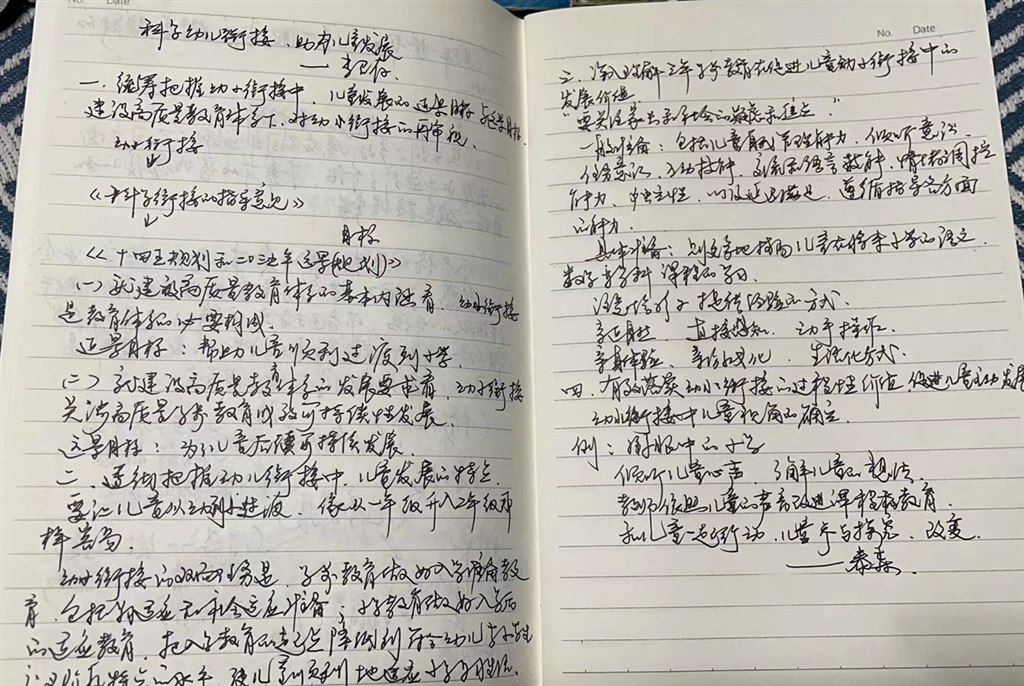 No. Date
科学幼儿衔接、助力儿童发展
一、统筹把握幼小衔接中,儿童发展的远景目标与近景目标
建设高质量教育体系下,对幼小衔接的再审视、
幼小衔接
《科学衔接的指导意见》
目标
《十四五规划和二0三五年远景规划》
(一)就建设高质量教育体系的基本内涵看,幼小衔接
是教育体系的必要构成、
近景目标:帮助儿童顺利过渡到小学
(二)就建设高质量教育体系的发展要求看,幼小衔接
关涉高质量学前教育成效可持续性发展、
远景目标:为了儿童后续可持续发展、
二、透彻把握幼儿衔接中,儿童发展的特点
要让儿童从幼到小过渡、像从一年级升入2年级那
样容易、
幼小衔接的双向任务是,学前教育做好入学准备教
育,包括身心适应和社会适应准备;小学教育做好入学后
的适应教育,把入学教育的起点降低到符合幼儿
的水平,使儿童顺利地适应小学学习生活、
No. Date
三、深入理解三年学前教育在促进儿童幼小衔接中的
发展价值
"要关注家长和社会的疑虑和焦点"
一般准备:包括儿童自我管理能力、倾听意识、
任务意识、交流和语言教育、情绪调控
能力、以及延迟满足、遵循指导各方面
的能力、
具体准备:则更多地指向儿童在将来小学的语文、
数学等学科课程的学习
方式、
直接感知、动手操作、
亲身体验、游戏化、生活化方式、
四、有效落实幼小衔接的过程性价值,促进儿童主动发展
幼小衔接中儿童视角的确立、
例:眼中的小学
倾听儿童心声、了解儿童的想法、
教师依照儿童的声音改进课程和教育
和儿童一起行动,儿童参与探究、改变、